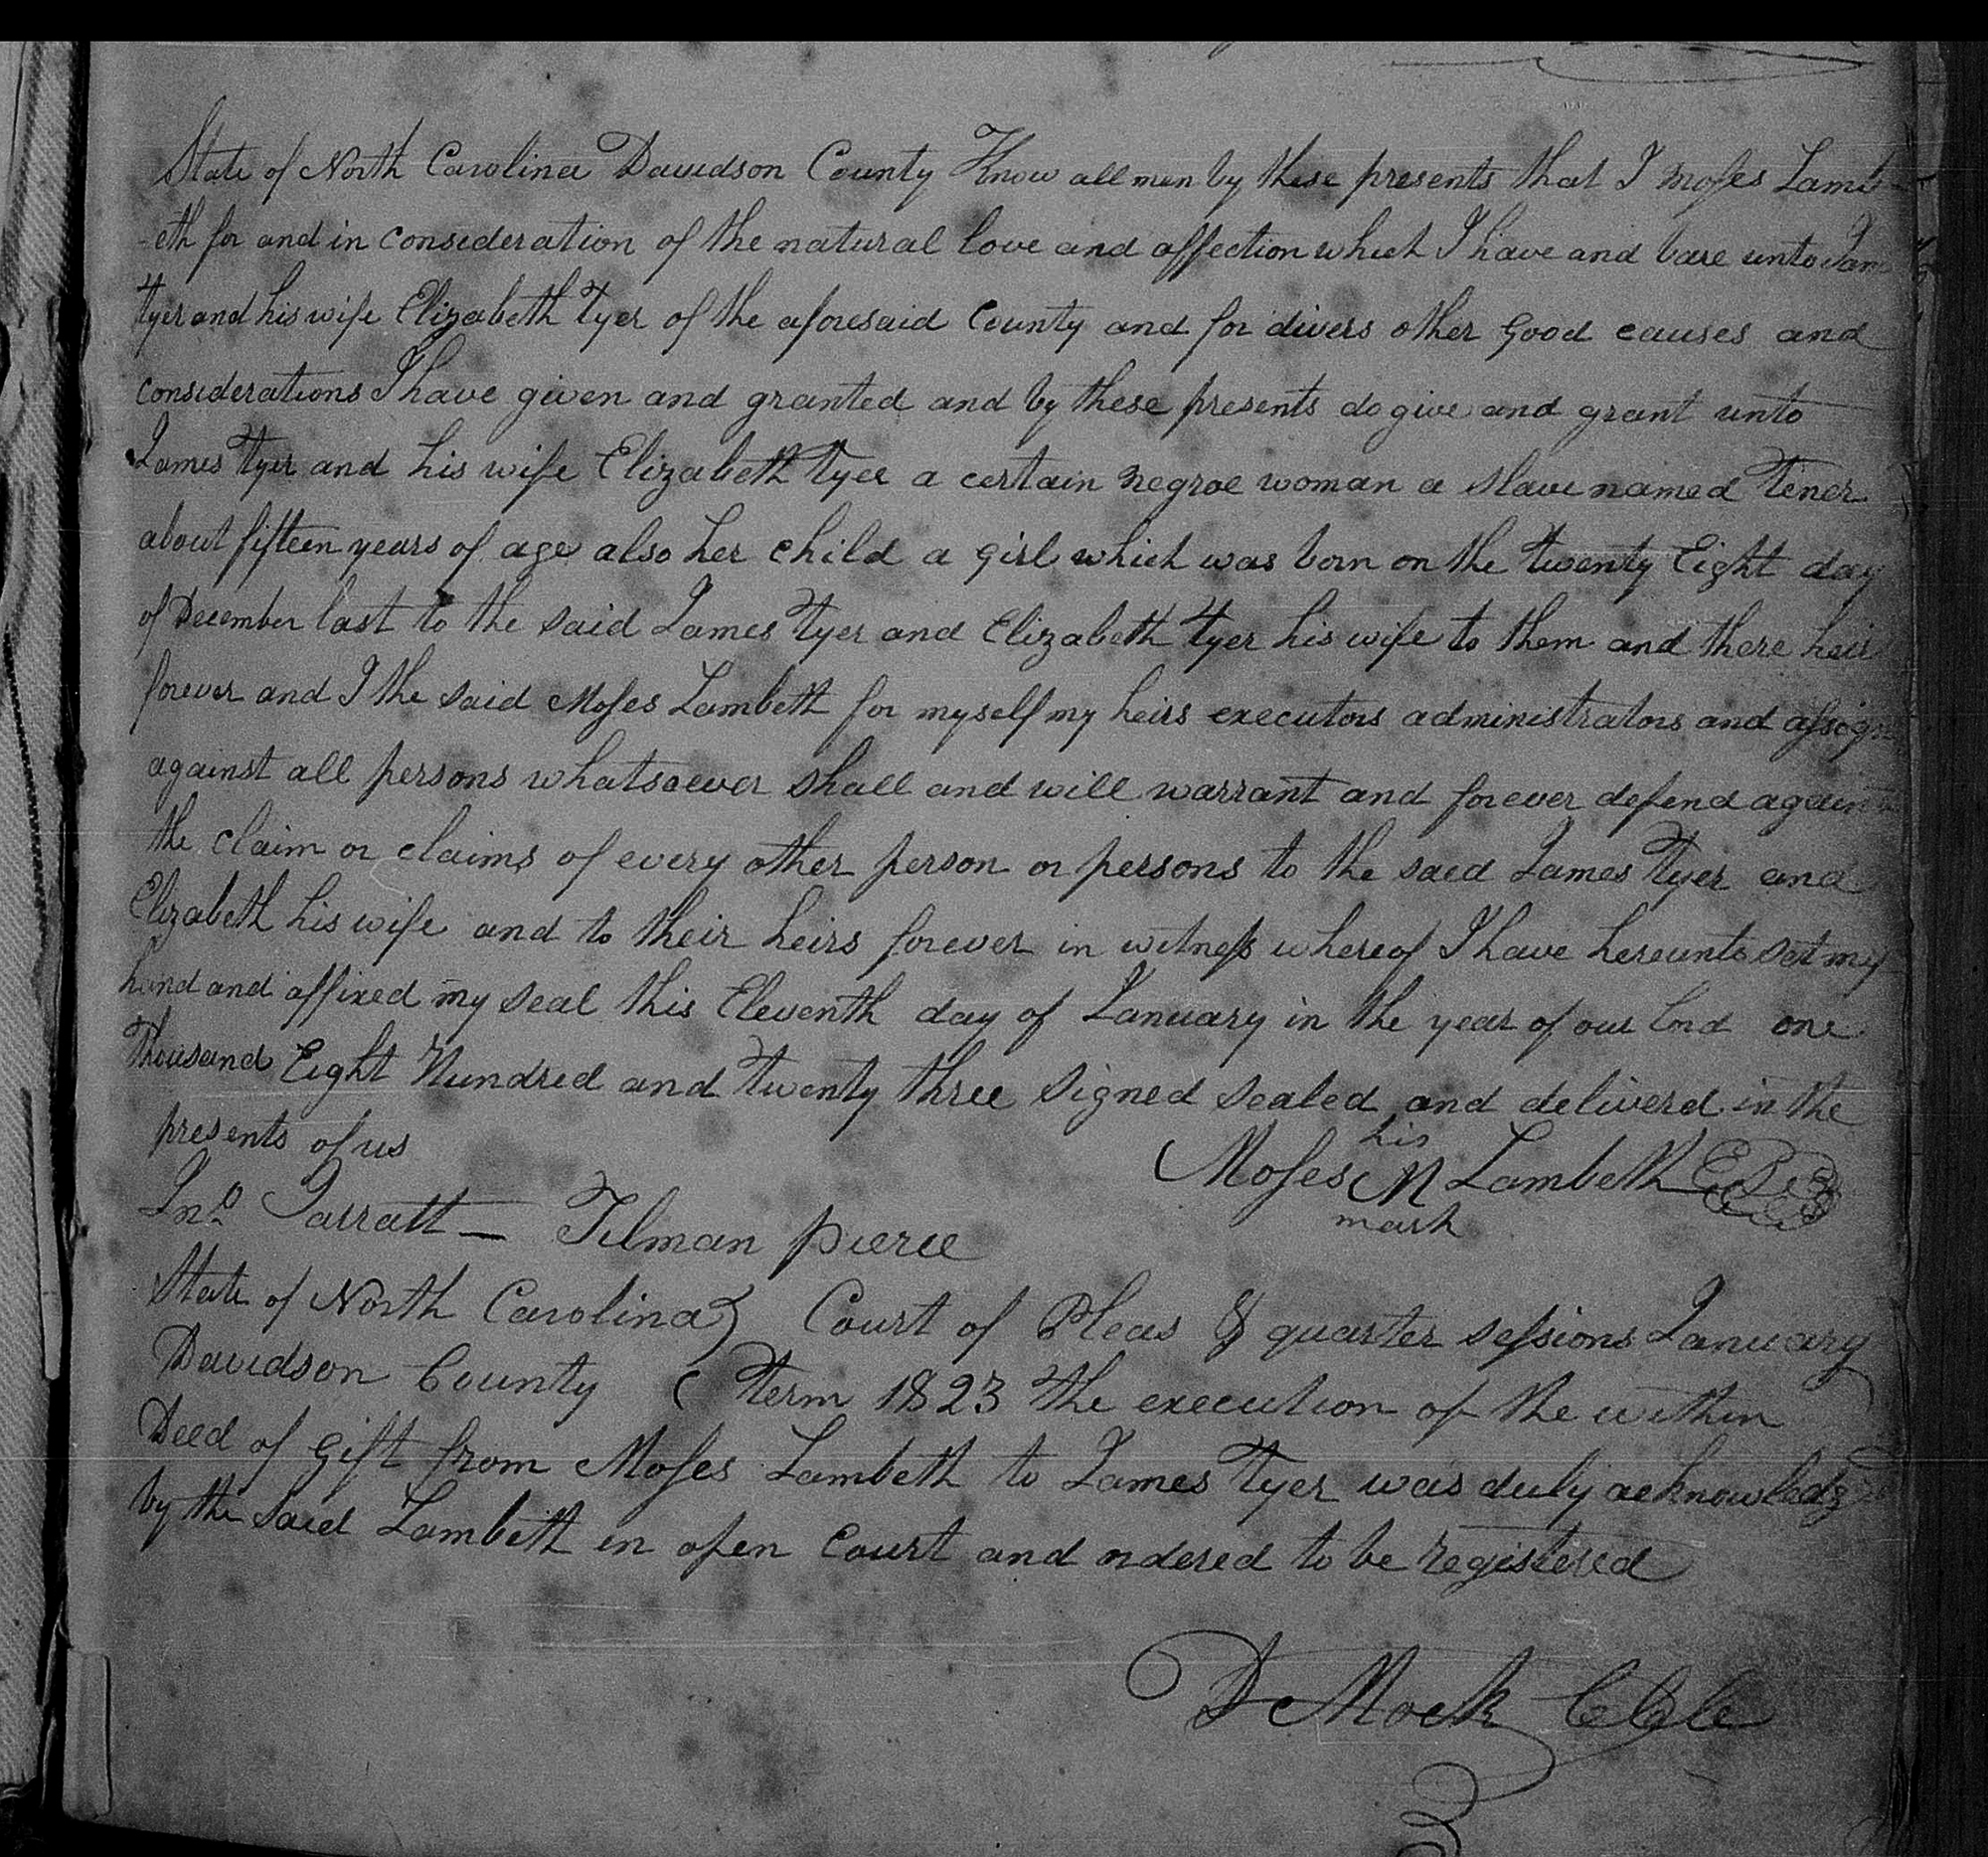 State of North Carolina Davidson County Know all men by these presents that I Moses Lamb
-eth for and in consideration of the natural love and affection which I have and bare unto Jam
Tyer and his wife Elizabeth Tyer of the aforesaid County and for divers other Good causes and
considerations I have given and granted and by these presents do give and grant unto
James Tyer and his wife Elizabeth Tyer a certain negroe woman a slave named Tener
about fifteen years of age also her child a girl which was born on the twenty Eight day
of December last to the said James Tyer and Elizabeth Tyer his wife to them and there heirs
forever and I the said Moses Lambeth for myself my heirs executors administrators and assigns
against all persons whatsoever shall and will warrant and forever defend against
the claim or claims of every other person or persons to the said James Tyer and
Elizabeth his wife and to their heirs forever in witness whereof I have hereunto set my
hand and affixed my seal this Eleventh day of January in the year of our Lord one
Thousand Eight Hundred and twenty three signed sealed and deliverd in the
presents of us
his
Moses M Lambeth
mark
Jno Tarratt — Tilman pierce
State of North Carolina } Court of Pleas & quarter sessions January
Davidson County ( Term 1823 the execution of the within
Deed of Gift from Moses Lambeth to James Tyer was duly acknowledg
by the said Lambeth in open Court and ordered to be registered
D Mock CClk